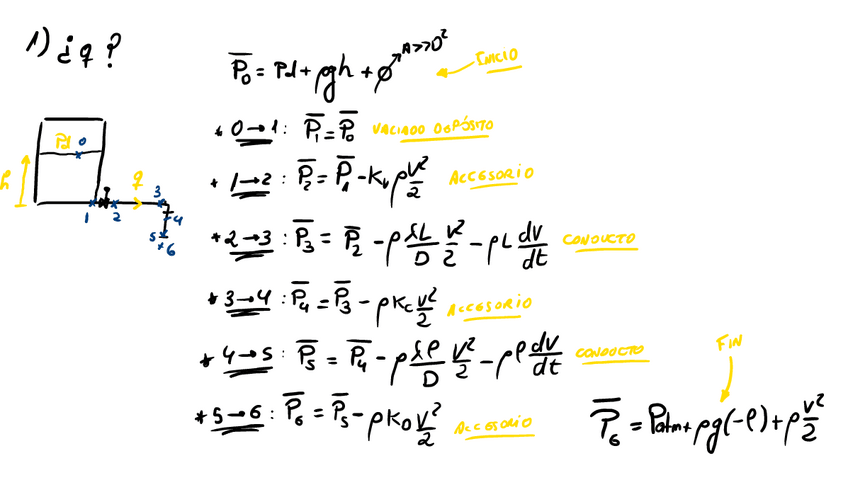 1) ¿q?
P̅₀ = Pd + ρgh + ø A>>D² INICIO
* 0→1: P̅₁ = P̅₀ VACIADO DEPÓSITO
* 1→2: P̅₂ = P̅₁ - Kᵥ ρ v²/2 ACCESORIO
* 2→3: P̅₃ = P̅₂ - ρ λL/D v²/2 - ρL dv/dt CONDUCTO
* 3→4: P̅₄ = P̅₃ - ρ Kc v²/2 ACCESORIO
* 4→5: P̅₅ = P̅₄ - ρ λℓ/D v²/2 - ρℓ dv/dt CONDUCTO
* 5→6: P̅₆ = P̅₅ - ρ K₀ v²/2 ACCESORIO
FIN
P̅₆ = Patm + ρg(-ℓ) + ρ v²/2
Pd 0
h
q
1 2 3
4
5
6